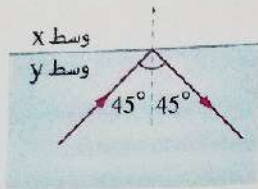 وسط x
وسط y
45° 45°